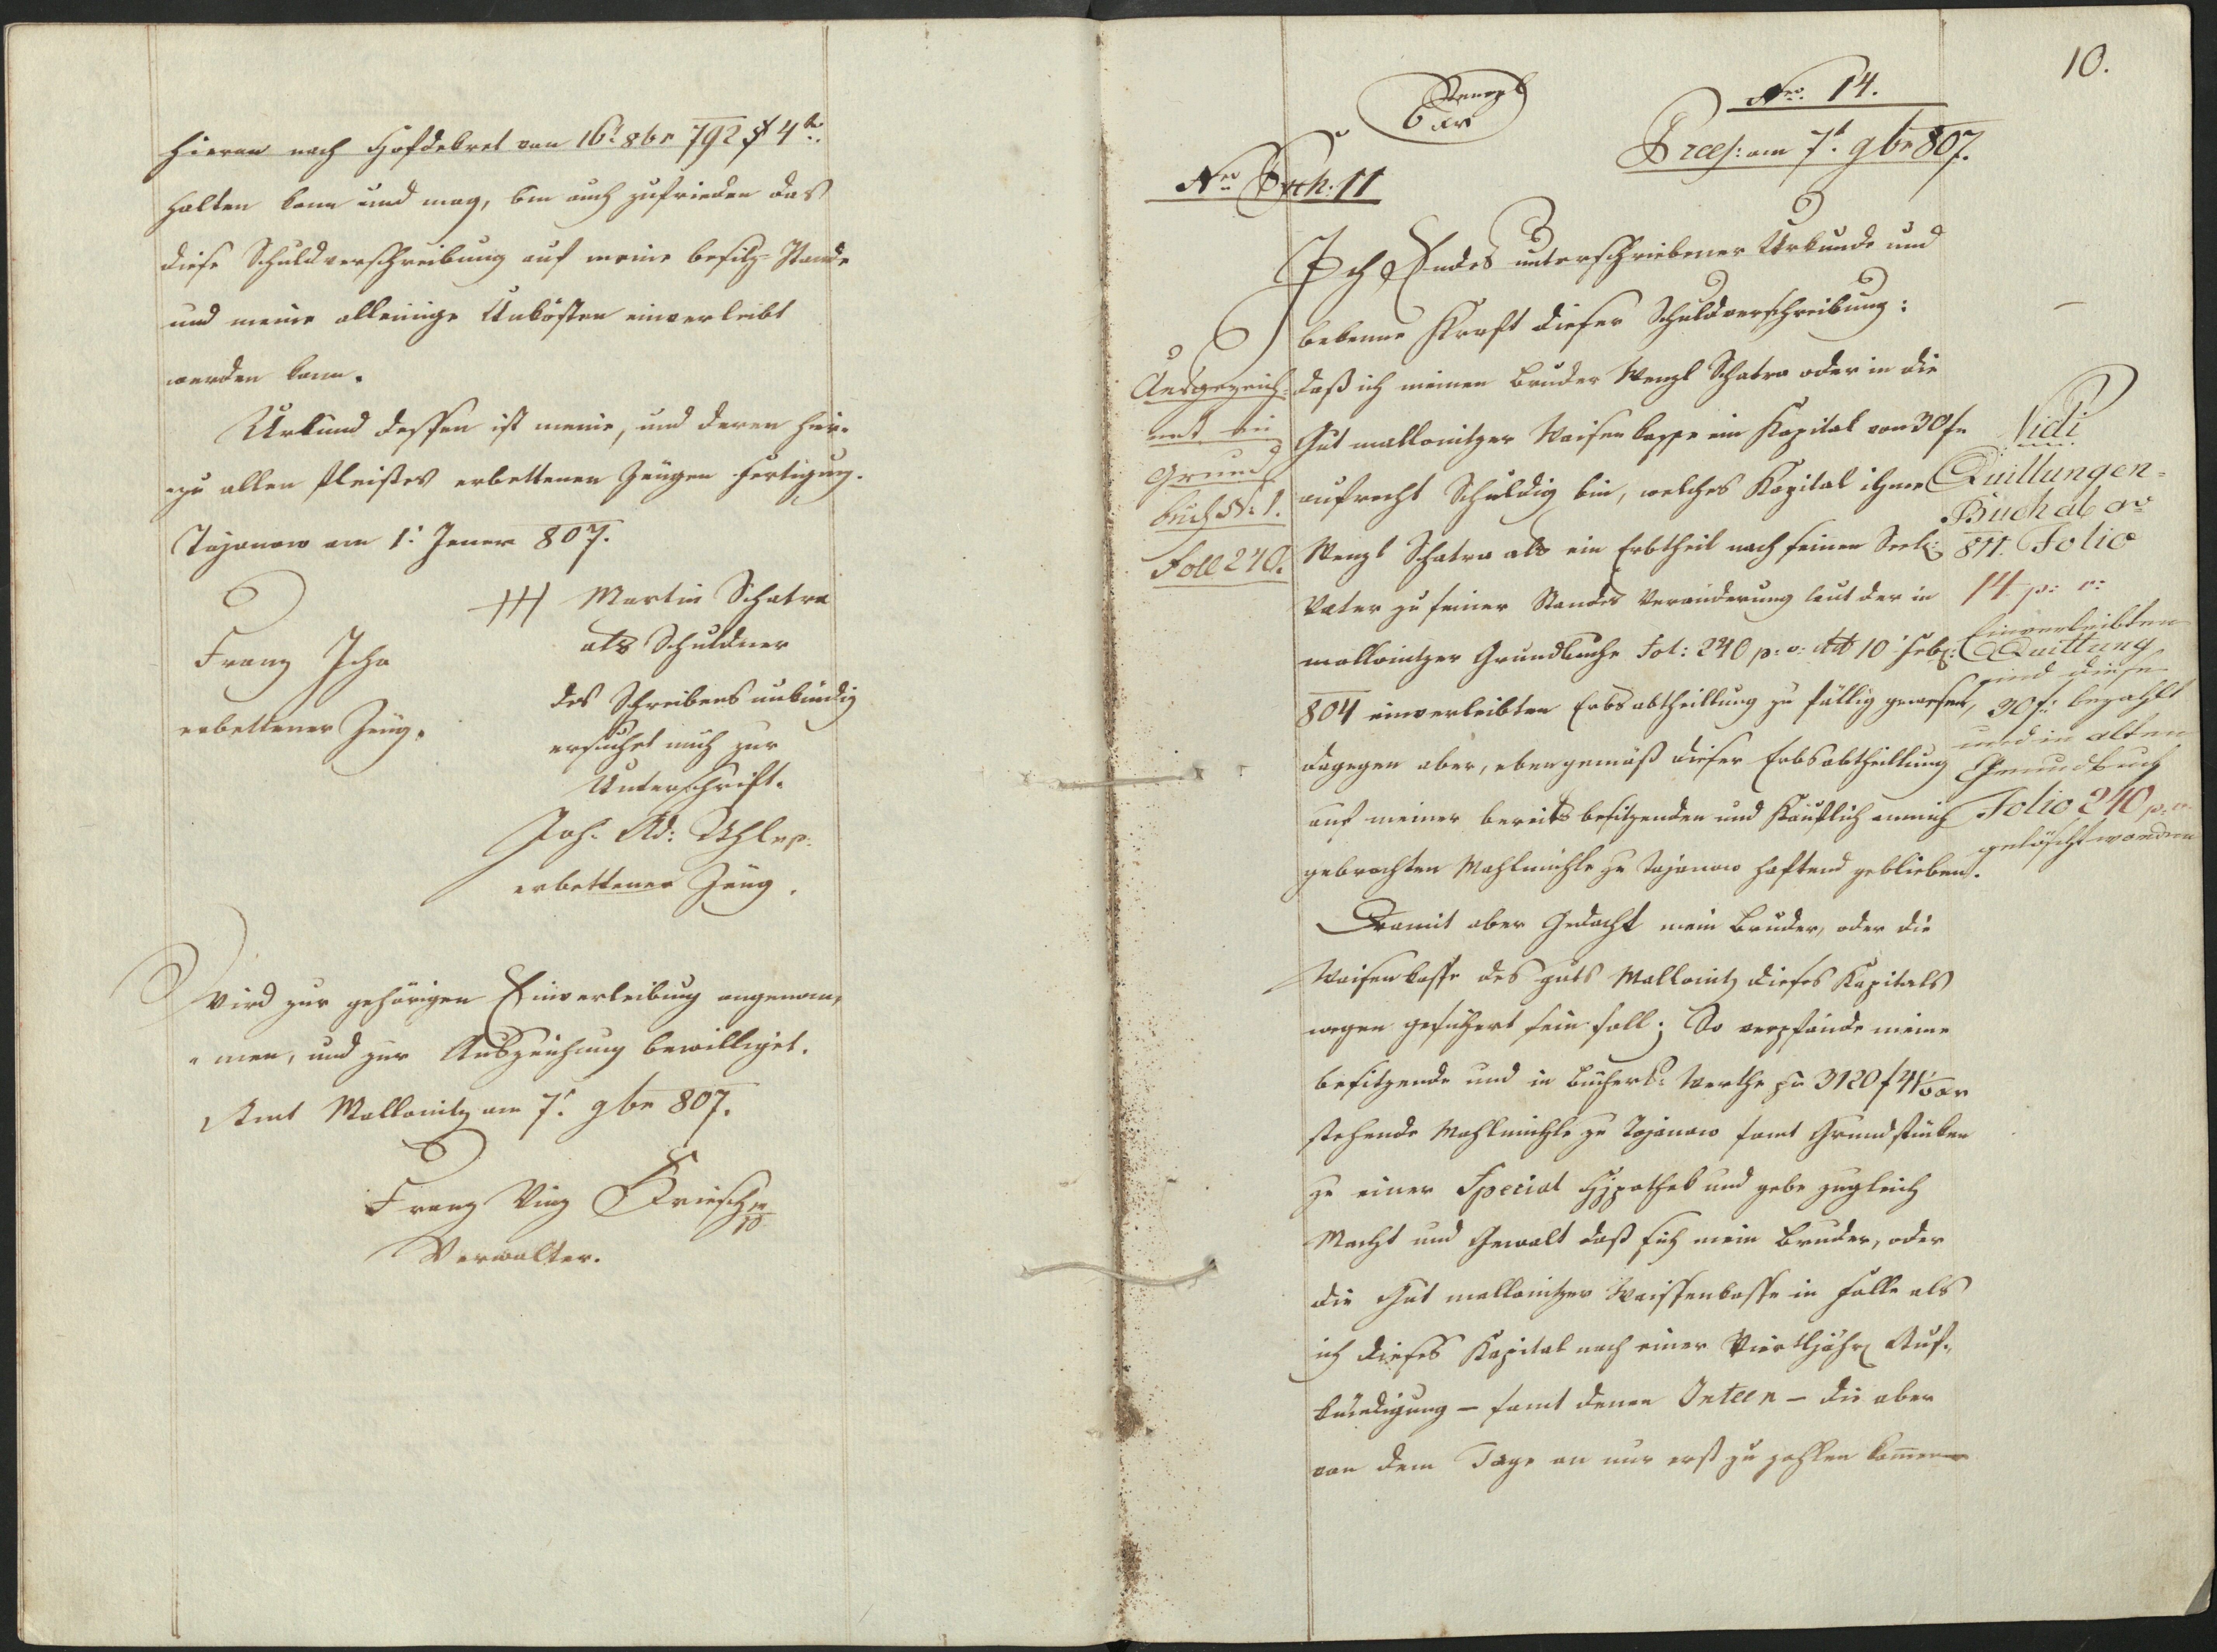 hieran nach Hofdekret von 16t 8br 792 § 4to
halten kann und mag, bin auch zufrieden das
diese Schuldverschreibung auf meine besitz-Stande
und meine alleinige Unkösten einverleibt
werden kann.
Urkund dessen ist meine, und deren hier-
zu allen Fleißes erbettenen Zeugen Fertigung.
Tajanow am 1t Jener 807.
+++ Martin Schatra
als Schuldner
des Schreibens unkündig
ersuchet mich zur
Unterschrift.
Joh. Ad:
erbettener Zeug.
Franz Icha
erbettener Zeug.
Wird zur gehörigen Einverleibung angenom-
men, und zur Auszeichung bewilliget.
Amt Mallonitz am 7t 9br 807.
Franz Vinz Kriesch mp
Verwalter.
10.
Stempl
6 xr
Nro 14.
Præs: am 7t 9br 807.
Nro Exh: 11
Ich Endes unterschriebener Urkunde und
bekenne Kraft dieser Schuldverschreibung:
daß ich meinen Bruder Wenzl Schatra oder in die
Gut mallonitzer Waisenkasse ein Kapital von 30 fr
aufrecht Schuldig bin, welches Kapital ihme
Wenzl Schatra als ein Erbtheil nach seinen Seel:
Vater zu seiner Standes Veränderung laut der in
mallonitzer Grundbuche Fol: 240 p: v: dtt 10t Feb:
804 einverleibten Erbsabtheillung zu fällig gewesen,
dagegen aber, eben gemäß dieser Erbsabtheillung
auf meiner bereits besitzenden und Käuflich an mich
gebrachten Mahlmühle zu Tajanow haftend geblieben.
Damit aber Gedacht mein Bruder, oder die
Waisenkasse des guts Mallonitz dieses Kapitals
wegen gesichert sein soll; So verpfände meine
besitzende und in Bücherl: Werthe zu 3120 f 41 xr
stehende Mahlmühle zu Tajanow samt Grundstücken
zu einer Special Hypothek und gebe zugleich
Macht und Gewalt daß sich mein Bruder, oder
die Gut mallonitzer Waissenkasse in Falle als
ich dieses Kapital nach einer Viertljähr Auf-
kündigung – samt denen Inteen – die aber
von dem Tage an nur erst zu zahlen kommen
Ausgezeich-
net in
Grund
buch N: 1.
Foll 240.
Vidi
Quittungen-
Buch de ao
811. Folio
14 p: v:
Einverleibten
Quittung
sind diese
30 f: bezahlt
und in alten
Grundbuch
Folio 240 p: v:
gelöscht worden